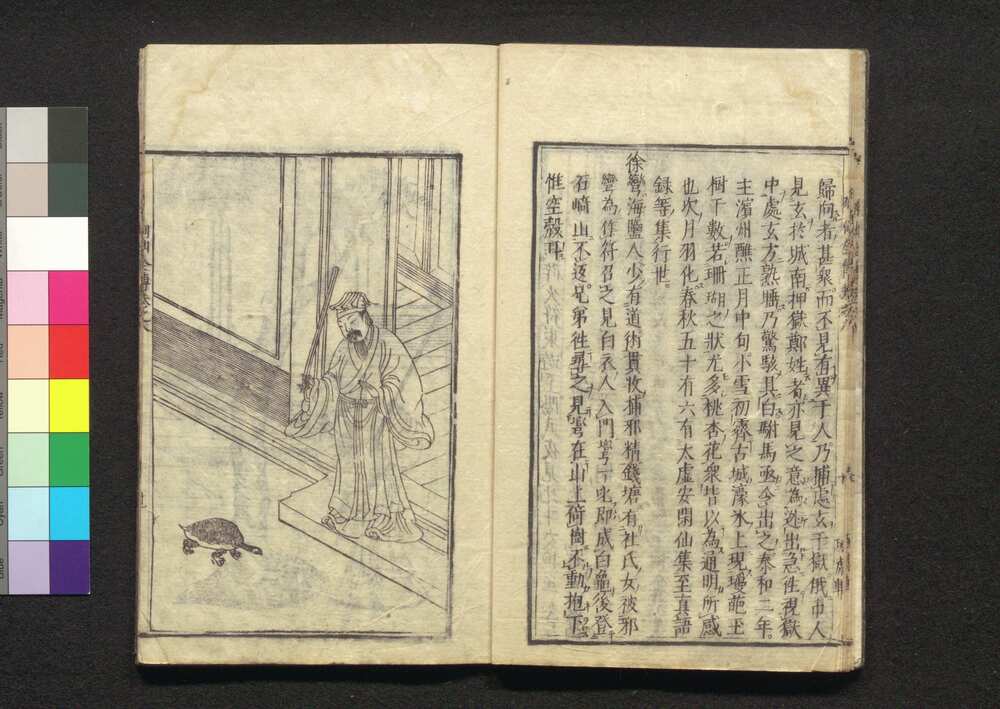 歸向者甚衆而不見有異于人乃捕處玄于獄俄市人
見玄於城南押獄鄭姓者亦見之意為逃出急往視獄
中處玄方熟睡乃驚駭其白駙馬亟令出之泰和二年
主濱州醮正月中旬小雪初霽古城濠氷上現瓊葩玉
樹千數若珊瑚之狀尤多桃杏花衆皆以為通明所感
也次月羽化春秋五十有六有大虛安閑仙集至真語
録等集行世
徐彎海鹽人少有道術貫收捕邪精錢塘有杜氏女被邪
彎為作符召之見白衣人入門彎一叱即成白龜後登
石崎山不返兄弟往尋之見彎在山上荷樹不動抱下
惟空殼耳